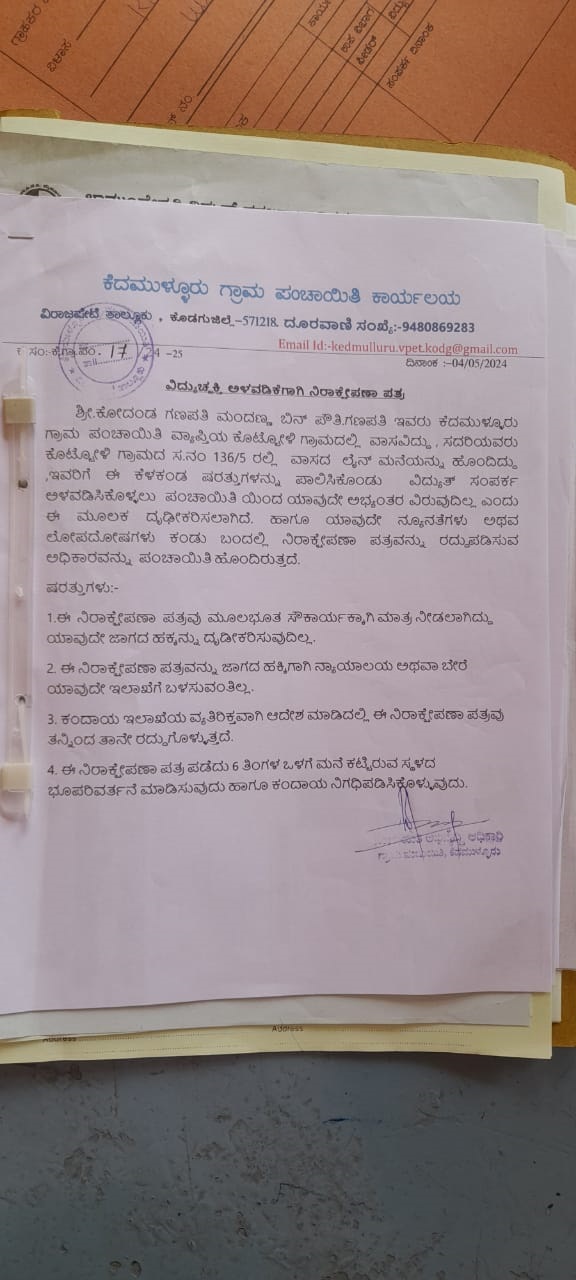 ವಿಳಾಸ
ಸಂಪರ್ಕ ದಿನಾಂಕ
ಕೆದಮುಳ್ಳೂರು ಗ್ರಾಮ ಪಂಚಾಯಿತಿ ಕಾರ್ಯಲಯ
ವಿರಾಜಪೇಟೆ ತಾಲ್ಲೂಕು , ಕೊಡಗುಜಿಲ್ಲೆ-571218. ದೂರವಾಣಿ ಸಂಖ್ಯೆ:-9480869283
Email Id:-kedmulluru.vpet.kodg@gmail.com
ಸಂ:ಕೆ.ಗ್ರಾ.ಪಂ. 17 -25 ದಿನಾಂಕ :-04/05/2024
ವಿದ್ಯುಚ್ಛಕ್ತಿ ಅಳವಡಿಕೆಗಾಗಿ ನಿರಾಕ್ಷೇಪಣಾ ಪತ್ರ
ಶ್ರೀ.ಕೋದಂಡ ಗಣಪತಿ ಮಂದಣ್ಣ ಬಿನ್ ಪೌತಿ.ಗಣಪತಿ ಇವರು ಕೆದಮುಳ್ಳೂರು
ಗ್ರಾಮ ಪಂಚಾಯಿತಿ ವ್ಯಾಪ್ತಿಯ ಕೊಟ್ಟೋಳಿ ಗ್ರಾಮದಲ್ಲಿ ವಾಸವಿದ್ದು , ಸದರಿಯವರು
ಕೊಟ್ಟೋಳಿ ಗ್ರಾಮದ ಸ.ನಂ 136/5 ರಲ್ಲಿ ವಾಸದ ಲೈನ್ ಮನೆಯನ್ನು ಹೊಂದಿದ್ದು
,ಇವರಿಗೆ ಈ ಕೆಳಕಂಡ ಷರತ್ತುಗಳನ್ನು ಪಾಲಿಸಿಕೊಂಡು ವಿದ್ಯುತ್ ಸಂಪರ್ಕ
ಅಳವಡಿಸಿಕೊಳ್ಳಲು ಪಂಚಾಯಿತಿ ಯಿಂದ ಯಾವುದೇ ಅಭ್ಯಂತರ ವಿರುವುದಿಲ್ಲ ಎಂದು
ಈ ಮೂಲಕ ದೃಢೀಕರಿಸಲಾಗಿದೆ. ಹಾಗೂ ಯಾವುದೇ ನ್ಯೂನತೆಗಳು ಅಥವ
ಲೋಪದೋಷಗಳು ಕಂಡು ಬಂದಲ್ಲಿ ನಿರಾಕ್ಷೇಪಣಾ ಪತ್ರವನ್ನು ರದ್ದುಪಡಿಸುವ
ಅಧಿಕಾರವನ್ನು ಪಂಚಾಯಿತಿ ಹೊಂದಿರುತ್ತದೆ.
ಷರತ್ತುಗಳು:-
1.ಈ ನಿರಾಕ್ಷೇಪಣಾ ಪತ್ರವು ಮೂಲಭೂತ ಸೌಕಾರ್ಯಕ್ಕಾಗಿ ಮಾತ್ರ ನೀಡಲಾಗಿದ್ದು
ಯಾವುದೇ ಜಾಗದ ಹಕ್ಕನ್ನು ದೃಡೀಕರಿಸುವುದಿಲ್ಲ.
2. ಈ ನಿರಾಕ್ಷೇಪಣಾ ಪತ್ರವನ್ನು ಜಾಗದ ಹಕ್ಕಿಗಾಗಿ ನ್ಯಾಯಾಲಯ ಅಥವಾ ಬೇರೆ
ಯಾವುದೇ ಇಲಾಖೆಗೆ ಬಳಸುವಂತಿಲ್ಲ.
3. ಕಂದಾಯ ಇಲಾಖೆಯ ವ್ಯತಿರಿಕ್ತವಾಗಿ ಆದೇಶ ಮಾಡಿದಲ್ಲಿ ಈ ನಿರಾಕ್ಷೇಪಣಾ ಪತ್ರವು
ತನ್ನಿಂದ ತಾನೇ ರದ್ದುಗೊಳ್ಳುತ್ತದೆ.
4. ಈ ನಿರಾಕ್ಷೇಪಣಾ ಪತ್ರ ಪಡೆದು 6 ತಿಂಗಳ ಒಳಗೆ ಮನೆ ಕಟ್ಟಿರುವ ಸ್ಥಳದ
ಭೂಪರಿವರ್ತನೆ ಮಾಡಿಸುವುದು ಹಾಗೂ ಕಂದಾಯ ನಿಗಧಿಪಡಿಸಿಕೊಳ್ಳುವುದು.
ಅಧಿಕಾರಿ
ಕೆದಮುಳ್ಳೂರು
Address
Address